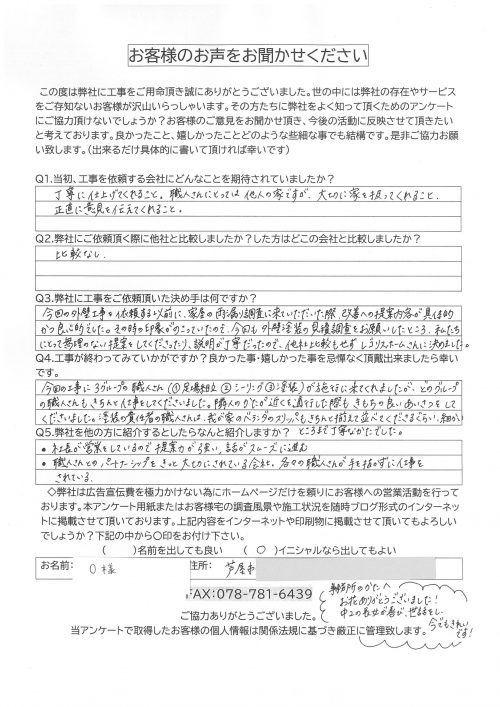 お客様のお声をお聞かせください
この度は弊社に工事をご用命頂き誠にありがとうございました。世の中には弊社の存在やサービス
をご存知ないお客様が沢山いらっしゃいます。その方たちに弊社をよく知って頂くためのアンケート
にご協力頂けないでしょうか?お客様のご意見をお聞かせ頂き、今後の活動に反映させて頂きたい
と考えております。良かったこと、嬉しかったことどのような些細な事でも結構です。是非ご協力お願
い致します。(出来るだけ具体的に書いて頂ければ幸いです)
Q1.当初、工事を依頼する会社にどんなことを期待されていましたか?
丁寧に仕上げてくれること。職人さんにとっては他人の家ですが、大切に家を扱ってくれること。
正直に意見を伝えてくれること。
Q2.弊社にご依頼頂く際に他社と比較しましたか?した方はどこの会社と比較しましたか?
比較なし
Q3.弊社に工事をご依頼頂いた決め手は何ですか?
今回の外壁工事を依頼する以前に、家屋の雨漏り調査に来ていただいた際、改善への提案内容が具体的
かつ良心的でした。その時の印象がのこっていたので、今回も外壁塗装の見積調査をお願いしたところ、私たち
にとって無理のない提案をしてくださったり、説明が丁寧だったので、他社と比較もせず ホームさんに決めました。
Q4.工事が終わってみていかがですか?良かった事・嬉しかった事を忌憚なく頂戴出来ましたら幸い
です。
今回の工事に3グループの職人さん(①足場組立 ②シーリング ③塗装)が 来てくれましたが、どのグループ
の職人さんもきちんと仕事をしてくださいました。隣人のかたが近くを通行した際も きもちの良いあいさつをして
くださいました。塗装の責任者の職人さんは、我が家のベランダのスリッパもきちんと揃えて並べてくださるくらい、細かい
ところまで丁寧なかたでした。
Q5.弊社を他の方に紹介するとしたらなんと紹介しますか?
• 社長が営業をしているので提案力が強い、話がスムーズに進む
• 職人さんとのパートナーシップをきっと大切にされている会社と。各々の職人さんが手を抜かずに仕事を
されている。
◇弊社は広告宣伝費を極力かけない為にホームページだけを頼りにお客様への営業活動を行って
おります。本アンケート用紙またはお客様宅の調査風景や施工状況を随時ブログ形式のインターネッ
トに掲載させて頂いております。上記内容をインターネットや印刷物に掲載させて頂いてもよろしい
でしょうか?下記の中から○印をお付け下さい。
( )名前を出しても良い ( ○ )イニシャルなら出してもよい
お名前: O様 住所: 芦屋市
FAX:078-781-6439
ご協力ありがとうございました。
事務所のかたへ
お花ありがとうございました!
中2の長女が喜び、世話をし、
今でもきれいです!
当アンケートで取得したお客様の個人情報は関係法規に基づき厳正に管理致します。